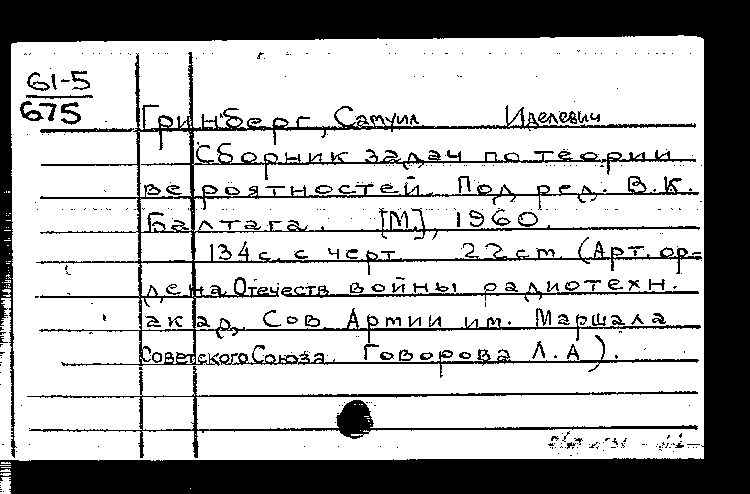 61-5
675
Гринберг, Самуил Иделевич
Сборник задач по теории
вероятностей. Под ред. В.К.
Балтага. [М.], 1960.
134 с. с черт. 22 cm. (Арт. ор-
дена Отечеств. войны радиотехн.
акад. Сов. Армии им. Маршала
Советского Союза. Говорова Л.А).